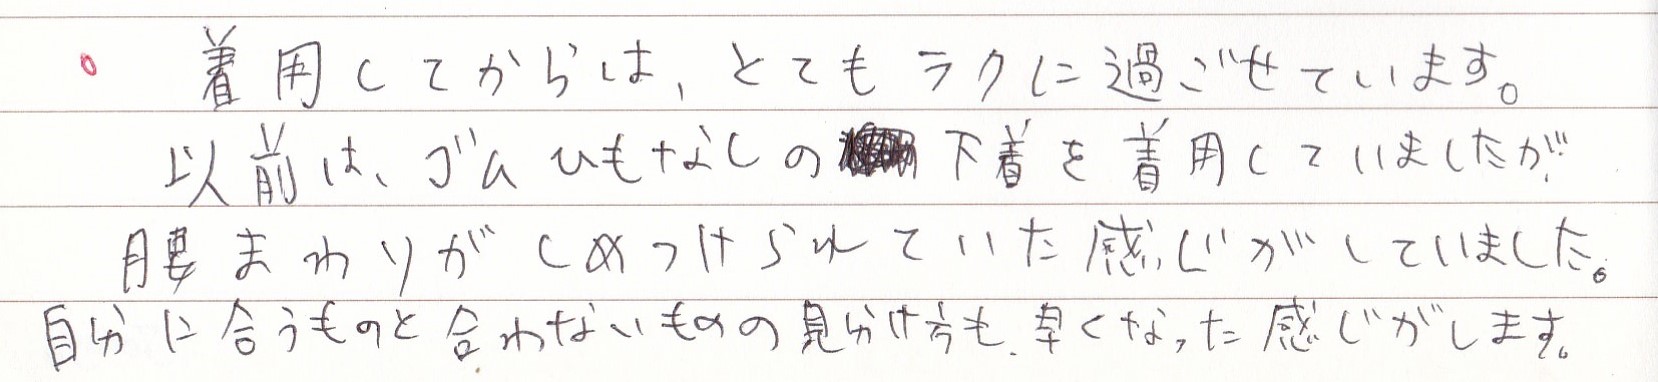 着用してからは、とてもラクに過ごせています。
以前は、ゴムひもなしの下着を着用していましたが、
腰まわりがしめつけられていた感じがしていました。
自分に合うものと合わないものの見分け方も、早くなった感じがします。